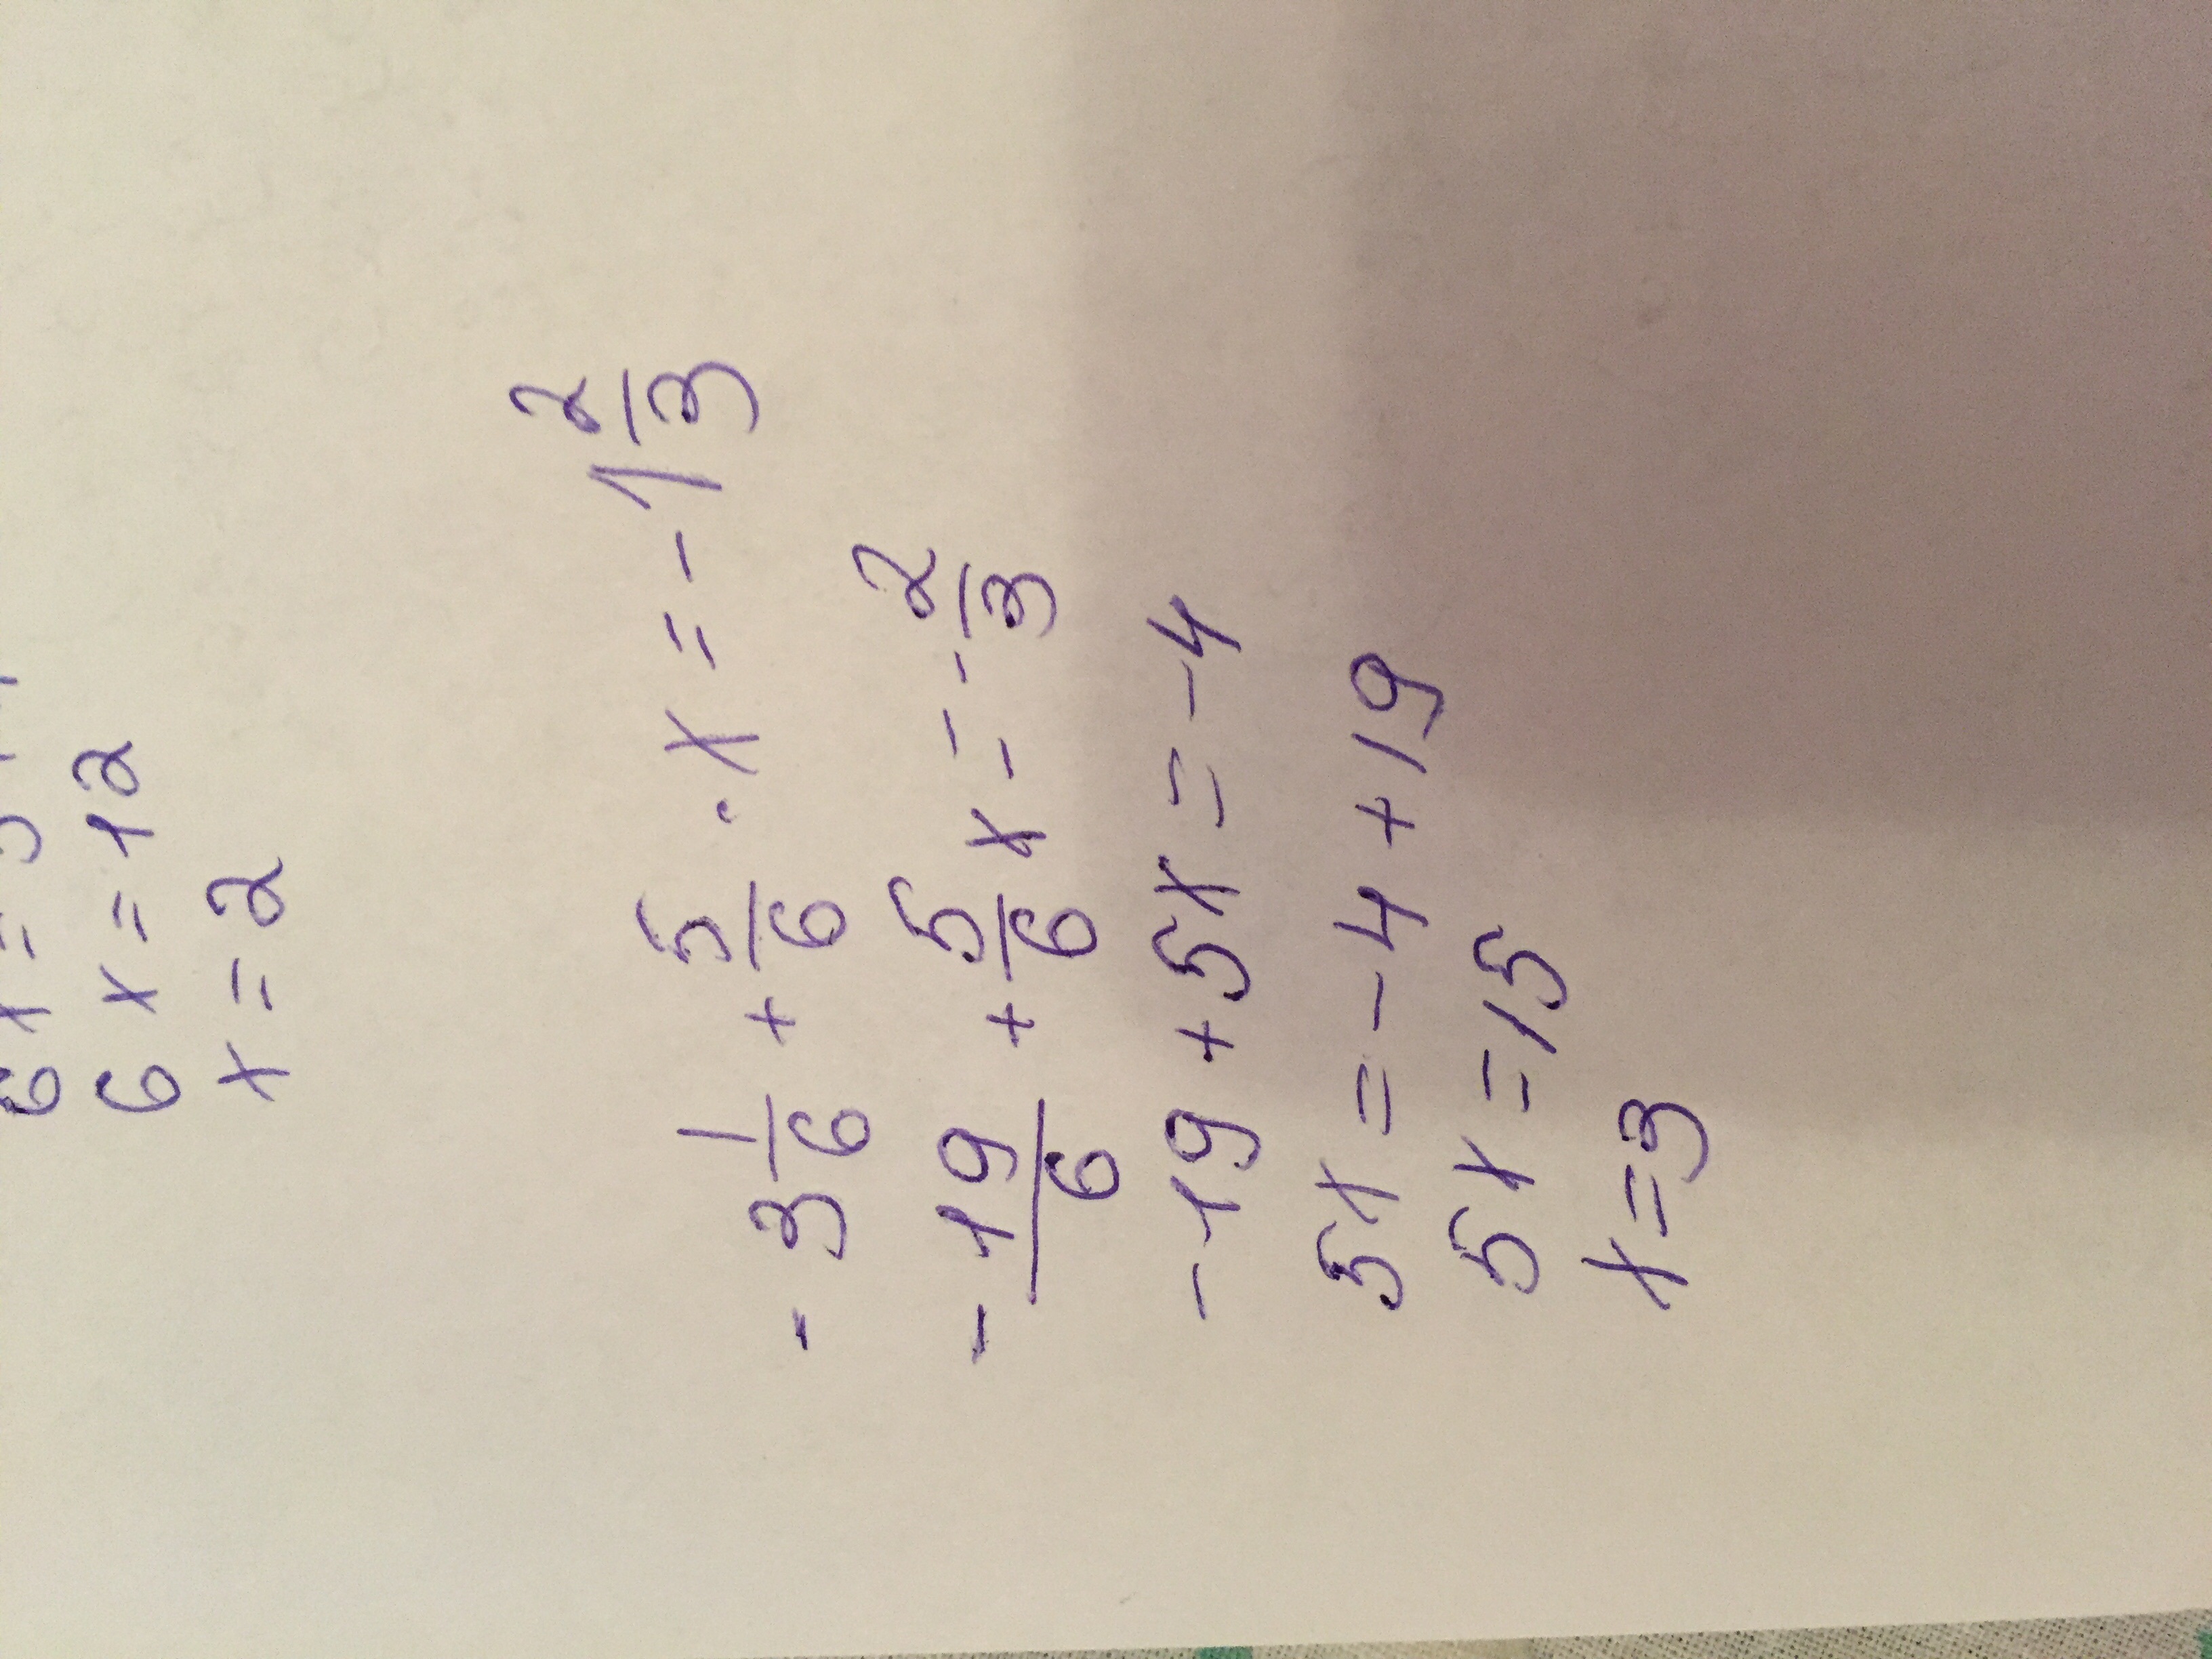 6x = 12
x = 2
- 3 1/6 + 5/6 · x = - 1 2/3
- 19/6 + 5/6 x = - 2/3
- 19 + 5x = - 4
5x = - 4 + 19
5x = 15
x = 3